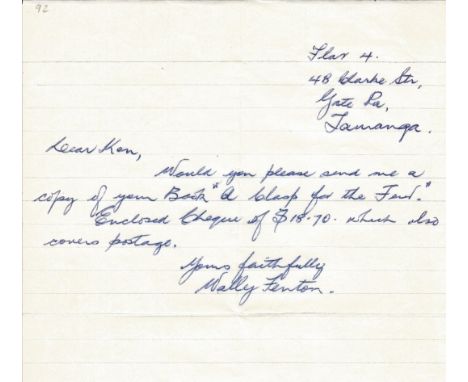 92
Flat 4.
48 Clarke Str,
Gate Pa,
Tauranga.
Dear Ken,
Would you please send me a
copy of your Book "A Clasp for the Few."
Enclosed Cheque of $18-70 which also
covers postage.
Yours faithfully
Wally Fenton.